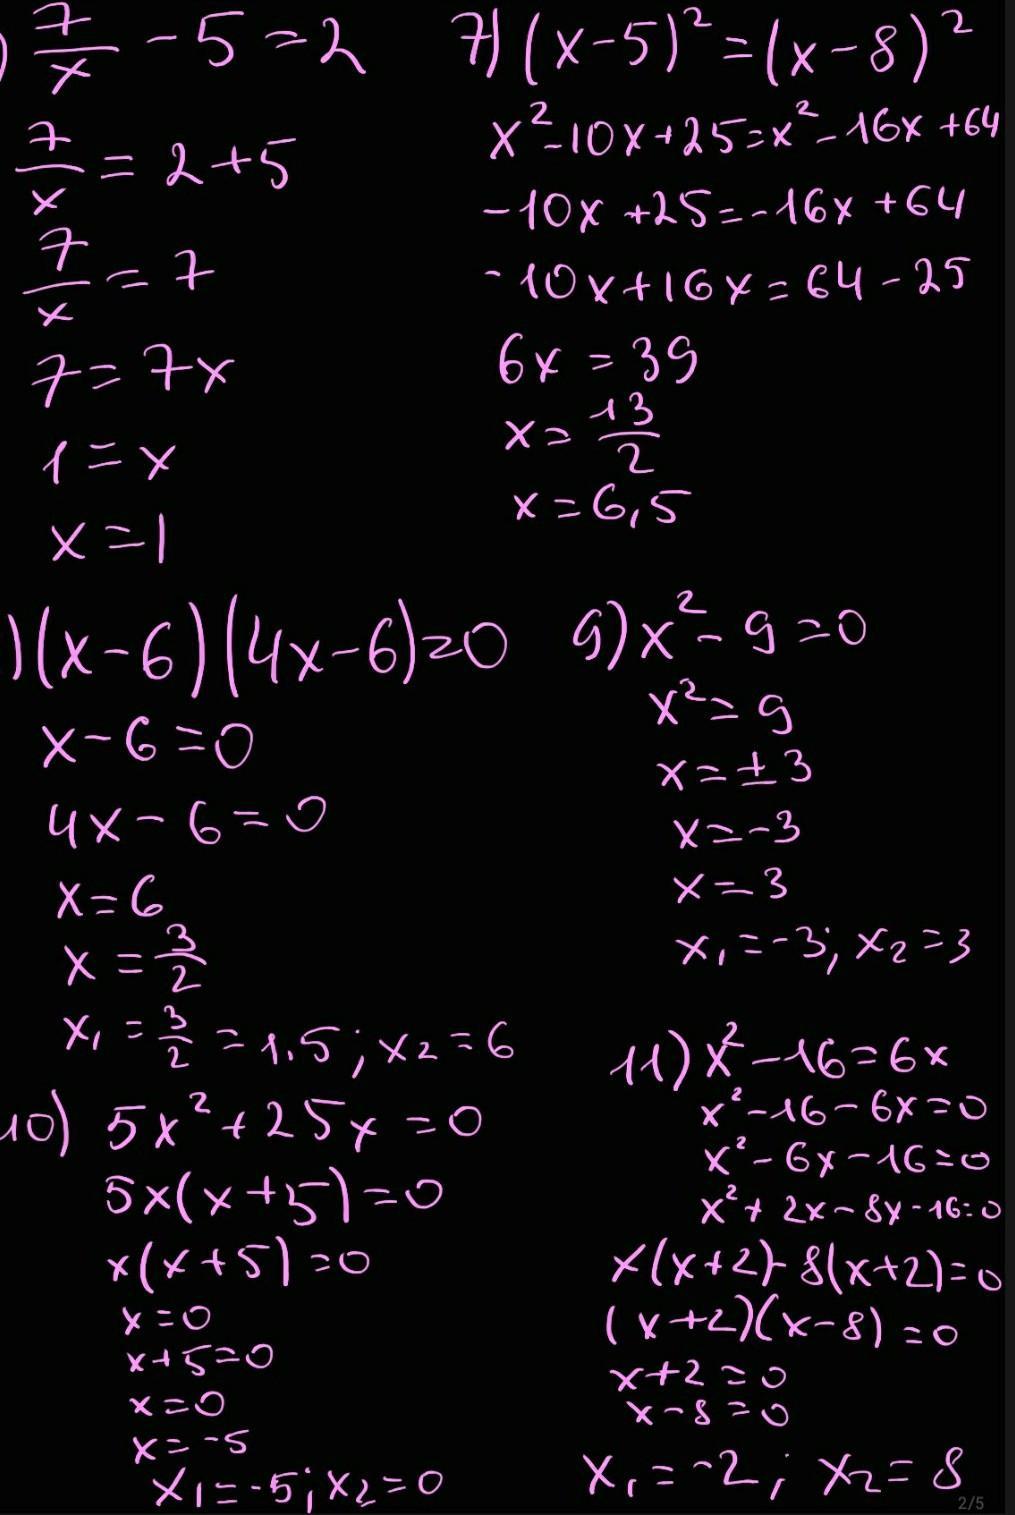 ) 7/x - 5 = 2
7/x = 2+5
7/x = 7
7 = 7x
1 = x
x = 1
7) (x-5)² = (x-8)²
x²-10x+25=x²-16x+64
-10x+25=-16x+64
-10x+16x=64-25
6x = 39
x = 13/2
x = 6,5
)(x-6)(4x-6)=0
x-6=0
4x-6=0
x=6
x = 3/2
x₁ = 3/2 = 1.5; x₂ = 6
9) x²-9=0
x²=9
x=±3
x=-3
x=3
x₁=-3; x₂=3
10) 5x²+25x=0
5x(x+5)=0
x(x+5)=0
x=0
x+5=0
x=0
x=-5
x₁=-5; x₂=0
11) x²-16=6x
x²-16-6x=0
x²-6x-16=0
x²+2x-8x-16=0
x(x+2)-8(x+2)=0
(x+2)(x-8)=0
x+2=0
x-8=0
x₁=-2; x₂=8
2/5